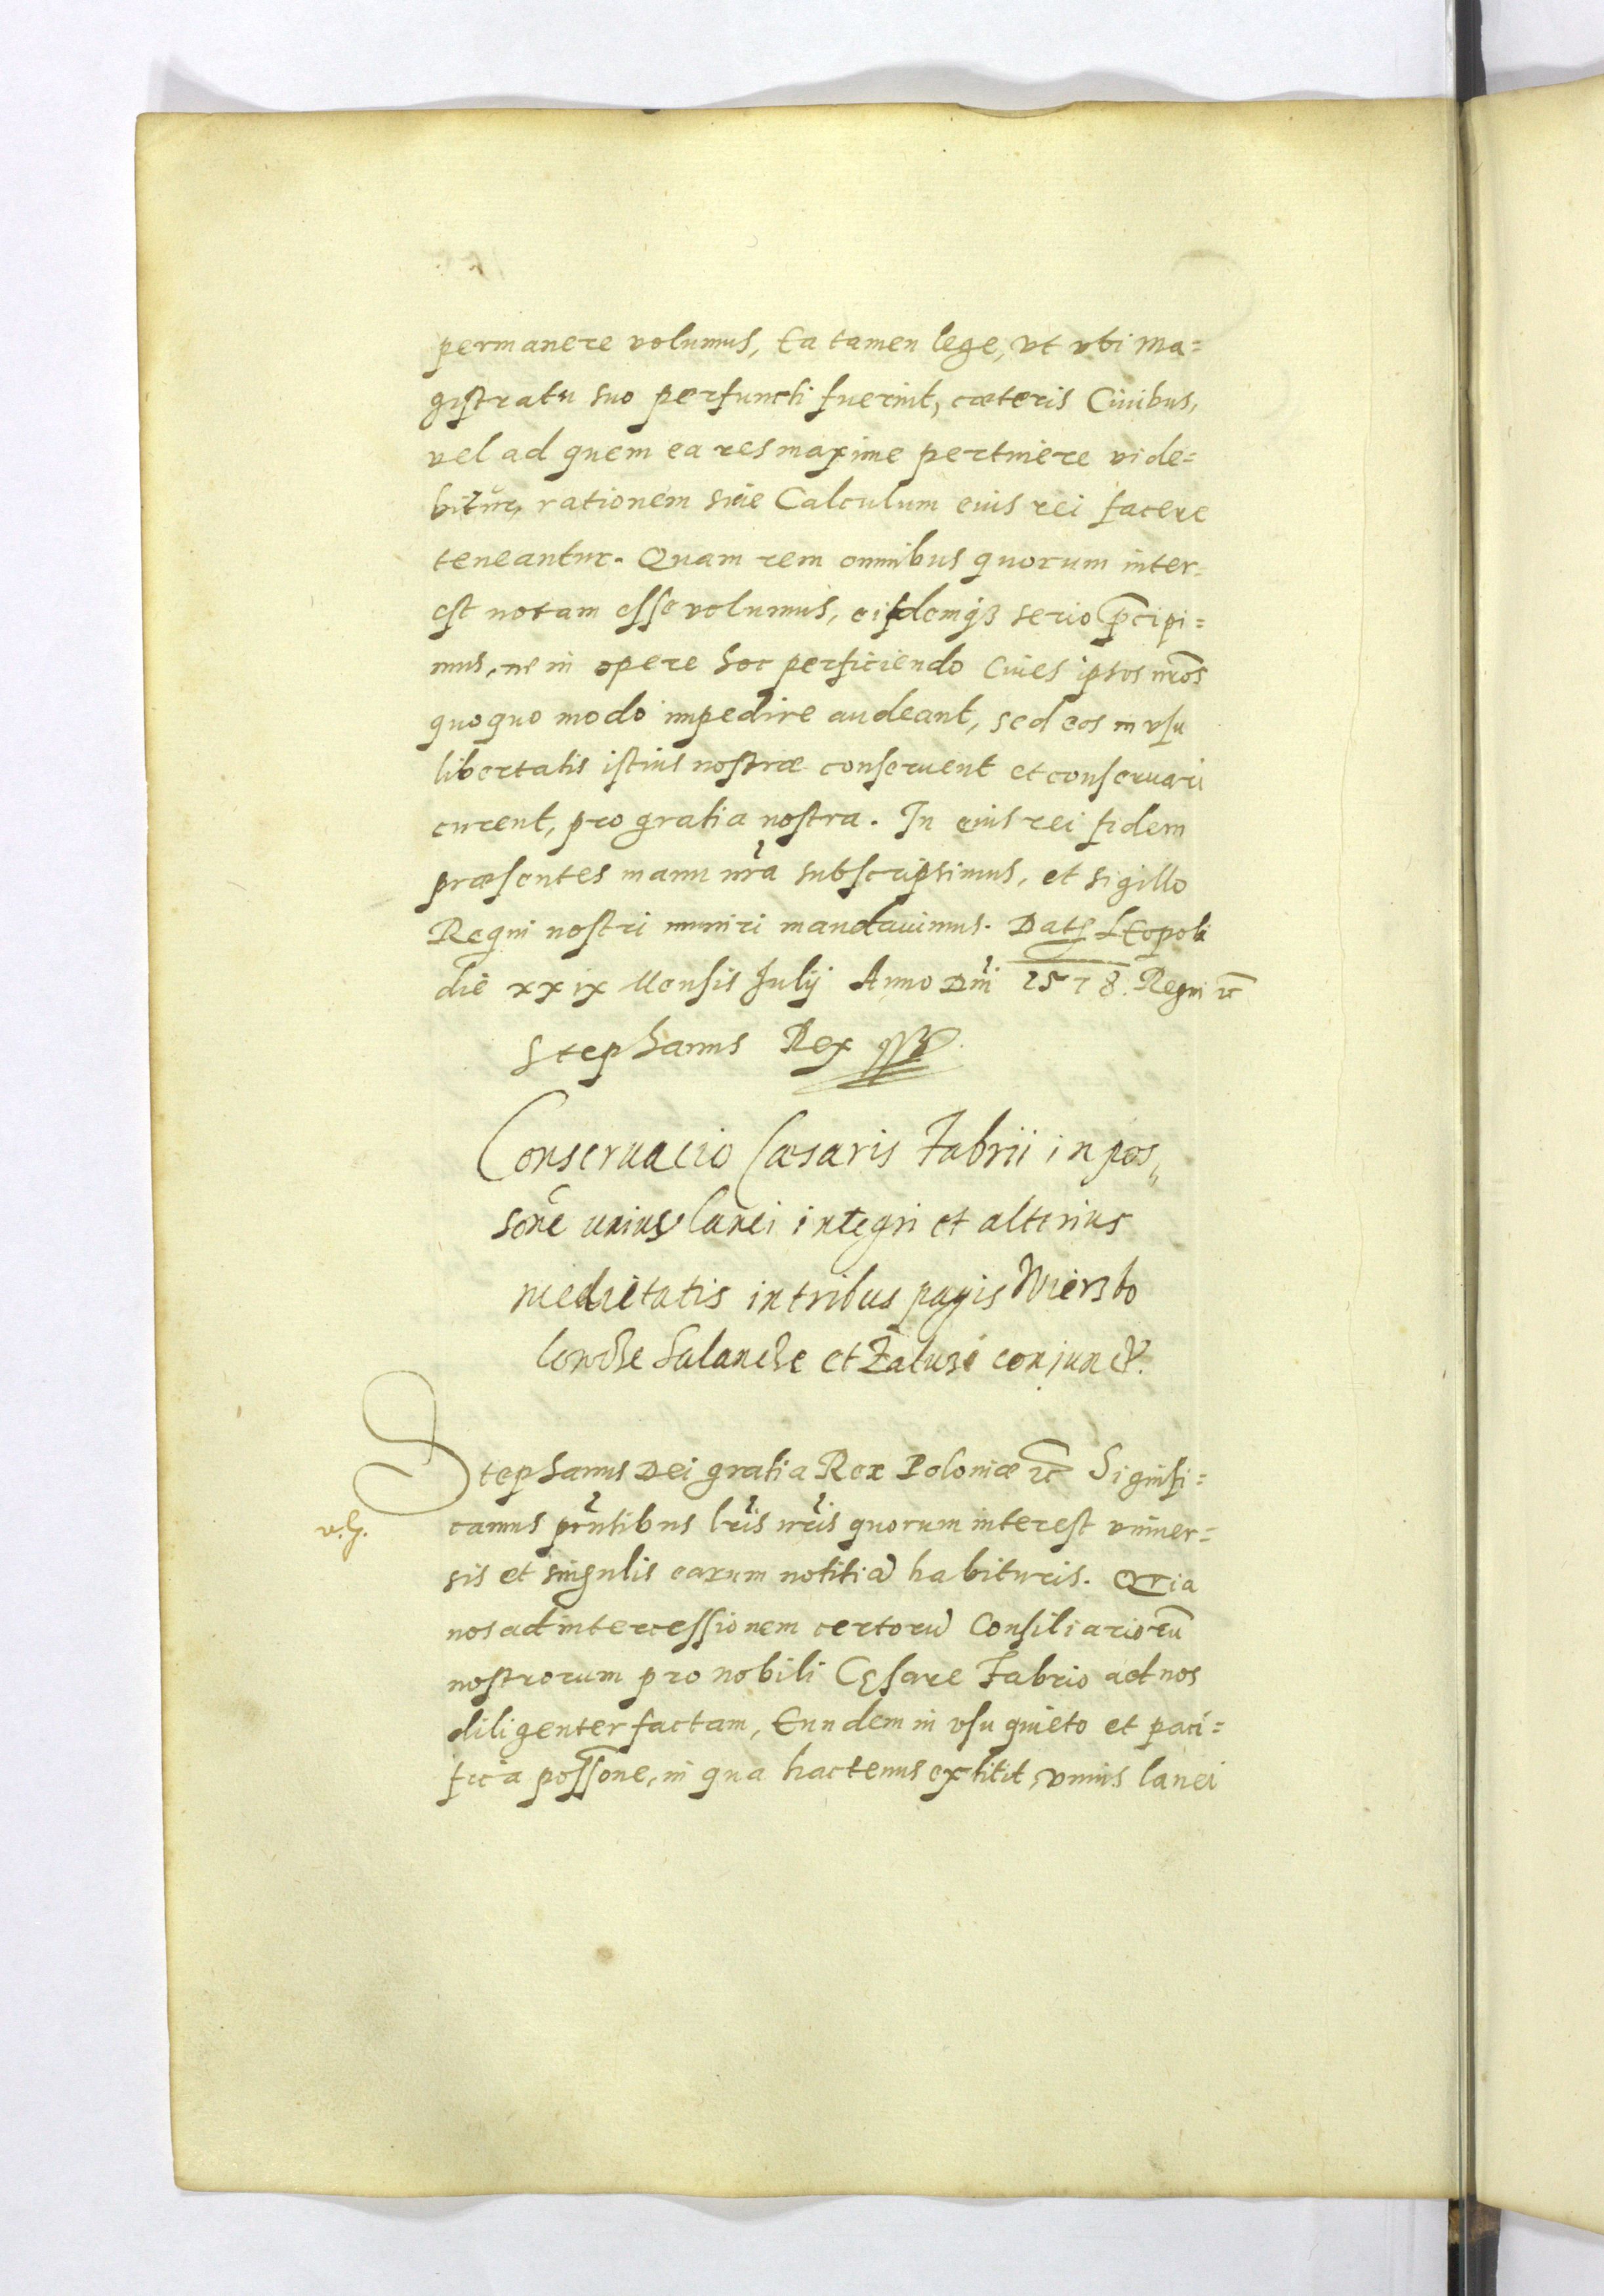 permanere volumus, Ea tamen lege, vt vbi ma=
gistratu suo perfuncti fuerint, cæteris Ciuibus,
vel ad quem ea res maxime pertinere vide=
bitur, rationem siue Calculum eius rei facere
teneantur. Quam rem omnibus quorum inter=
est notam esse volumus, eisdemq3 serio p̄cipi=
mus, ne in opere hoc perficiendo Ciues ipsos nr̄os
quoquo modo impedire audeant, sed eos in vsu
libertatis istius nostræ conseruent et conseruari
curent, pro gratia nostra. In eius rei fidem
præsentes manu nr̄a subscripsimus, et sigillo
Regni nostri muniri mandauimus. Datꝭ LEopoli
die xxix Mensis Julij Anno Dn̄i 1578. Regni ꝛc̄
Stephanus Rex
Conseruacio Cæsaris Fabrii in pos„
sōne unius lanei integri et alterius
medietatis in tribus pagis Wierzbo
Lonche Salanche et Zaluzi coniunct.
Stephanus Dei gratia Rex Poloniæ ꝛc̄ Signifi=
v.G.
camus pn̄tibus lr̄is nr̄is quorum interest vniuer=
sis et singulis earum notitiā habituris. Quia
nos ad intercessionem certorū Consiliariorū
nostrorum pro nobili Cęsare Fabrio ad nos
diligenter factam, Eundem in vsu quieto et paci=
fica poss̄one, in qua hactenus extitit, vnius lanei